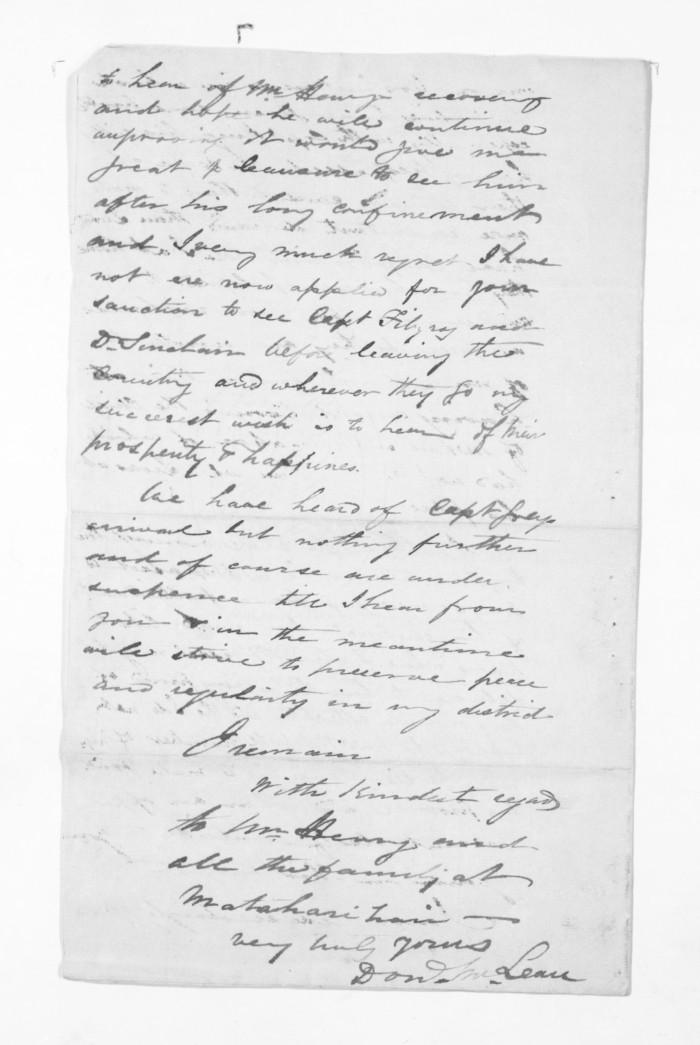 to hear of Mr Henrys recovery
and hope he will continue
improving it would give me
great pleausure to see him
after his long confinement
and I very much regret I have
not ere now applied for your
sanction to see Capt Fitzroy and
Dr Sinclair before leaving the
Country and wherever they go my
sincerest wish is to hear of their
prosperity & happines.
We have heard of Capt Greys
arrival but nothing further
and of course are under
suspence till I hear from
you & in the meantime
will strive to preserve peace
and regularity in my district
I remain
With kindest regards
to Mr Henry and
all the family at
very truly yours
Dond. McLean